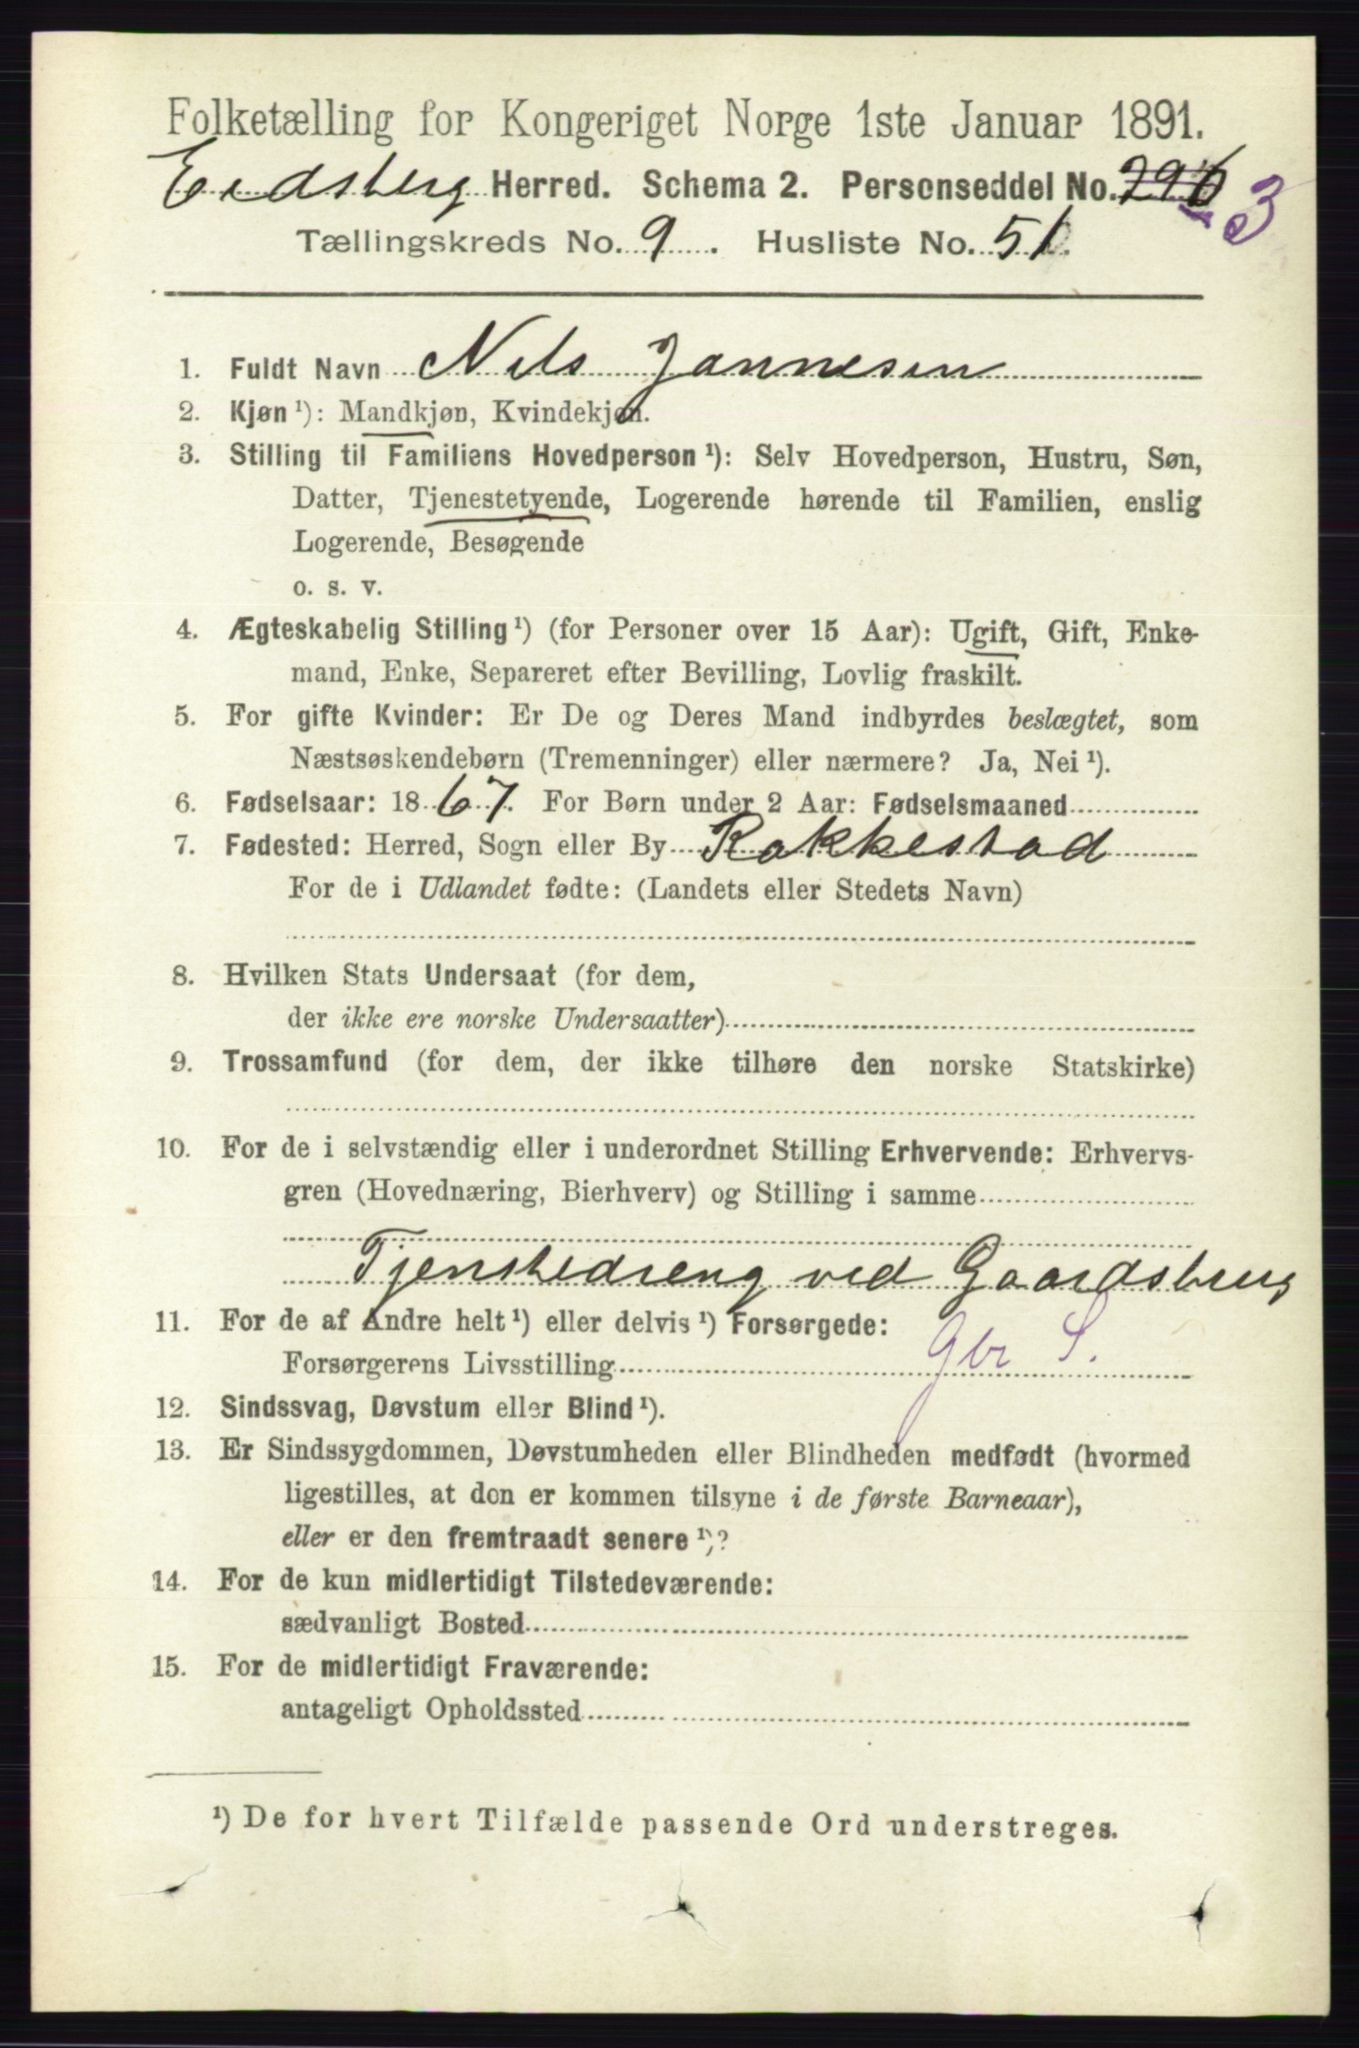 Folketælling for Kongeriget Norge 1ste Januar 1891.
Eidsberg Herred. Schema 2. Personseddel No. 296 3
Tællingskreds No. 9. Husliste No. 51.
1. Fuldt Navn Nils Jannesen
2. Kjøn ¹): Mandkjøn, Kvindekjøn.
3. Stilling til Familiens Hovedperson ¹): Selv Hovedperson, Hustru, Søn,
Datter, Tjenestetyende, Logerende hørende til Familien, enslig
Logerende, Besøgende
o. s. v.
4. Ægteskabelig Stilling ¹) (for Personer over 15 Aar): Ugift, Gift, Enke-
mand, Enke, Separeret efter Bevilling, Lovlig fraskilt.
5. For gifte Kvinder: Er De og Deres Mand indbyrdes beslægtet, som
Næstsøskendebørn (Tremenninger) eller nærmere? Ja, Nei ¹).
6. Fødselsaar: 1867. For Børn under 2 Aar: Fødselsmaaned
7. Fødested: Herred, Sogn eller By Rakkestad
For de i Udlandet fødte: (Landets eller Stedets Navn)
8. Hvilken Stats Undersaat (for dem,
der ikke ere norske Undersaatter)
9. Trossamfund (for dem, der ikke tilhøre den norske Statskirke)
10. For de i selvstændig eller i underordnet Stilling Erhvervende: Erhvervs-
gren (Hovednæring, Bierhverv) og Stilling i samme
Tjenstedreng ved Gaardsbrug
11. For de af Andre helt ¹) eller delvis ¹) Forsørgede:
Forsørgerens Livsstilling Gbr S.
12. Sindssvag, Døvstum eller Blind ¹).
13. Er Sindssygdommen, Døvstumheden eller Blindheden medfødt (hvormed
ligestilles, at den er kommen tilsyne i de første Barneaar),
eller er den fremtraadt senere ¹)?
14. For de kun midlertidigt Tilstedeværende:
sædvanligt Bosted
15. For de midlertidigt Fraværende:
antageligt Opholdssted
¹) De for hvert Tilfælde passende Ord understreges.